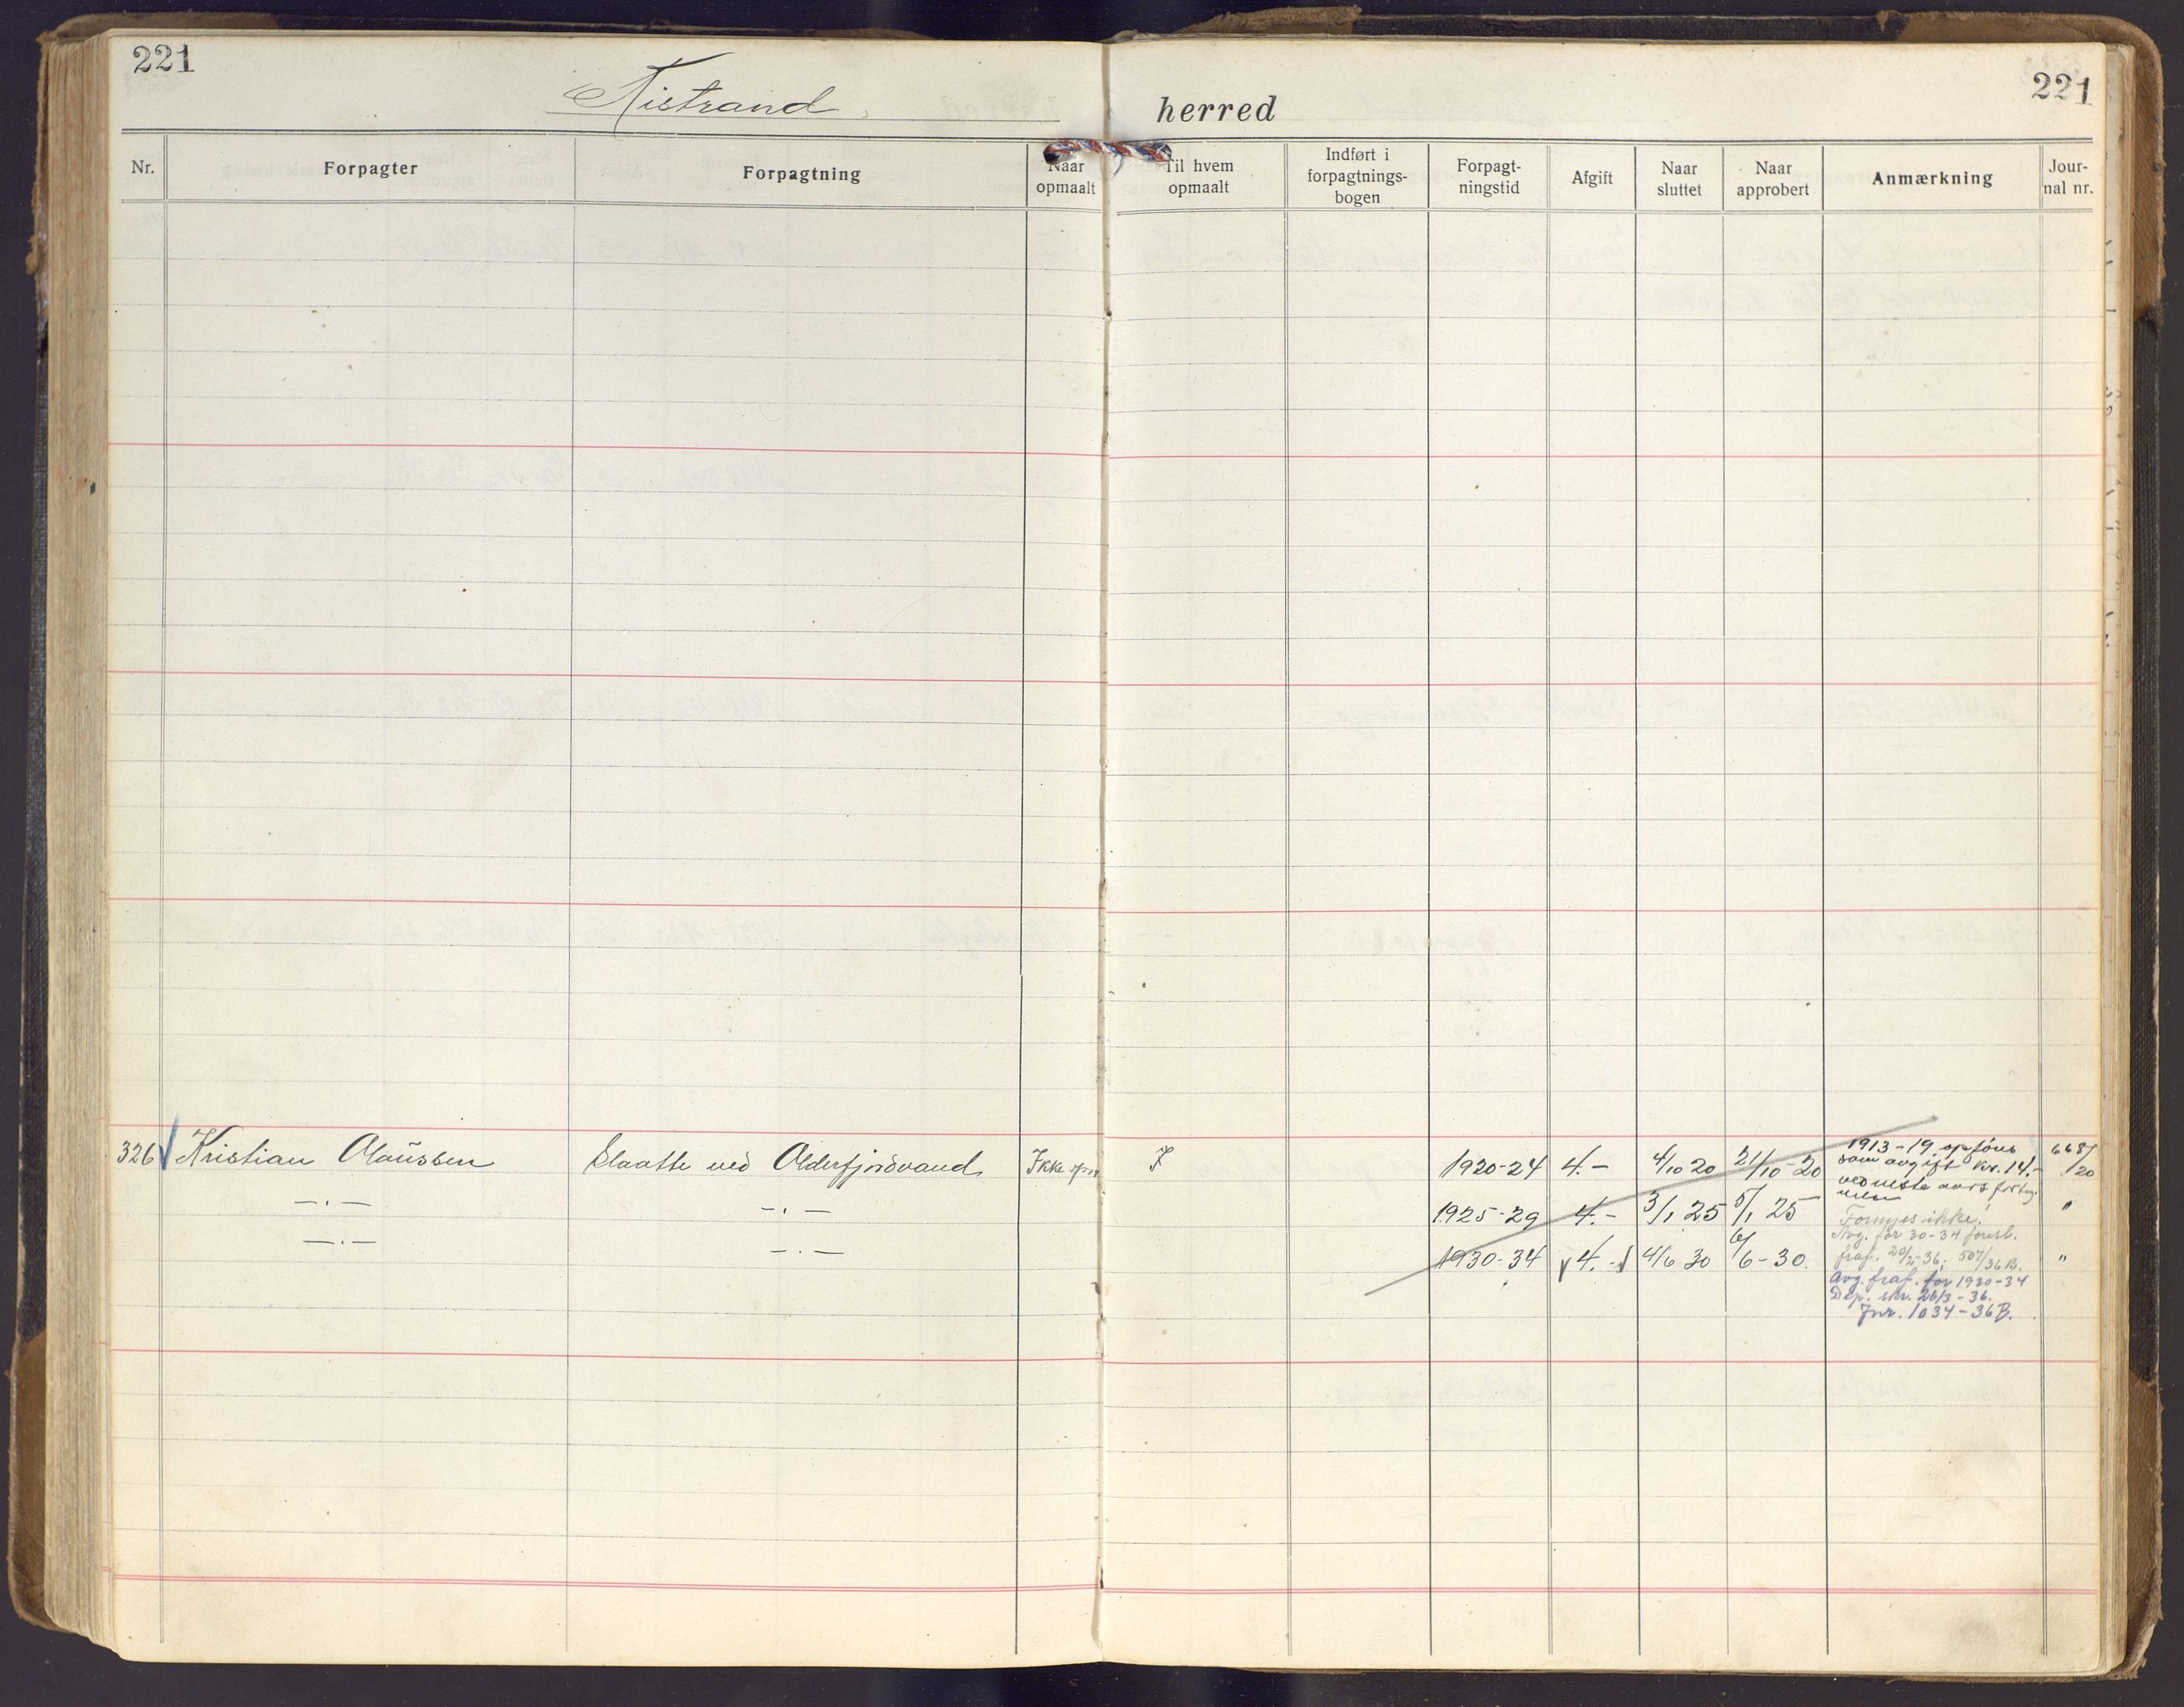 221
221
Kistrand herred
Nr. Forpagter Forpagtning Naar opmaalt Til hvem opmaalt Indført i forpagtnings-bogen Forpagt-ningstid Afgift Naar sluttet Naar approbert Anmærkning Jour-nal nr.
326 Kristian Olaussen Slaatte ved Olderfjordvand Ikke 1920-24 4.- 4/10 20 21/10-20 1913-19 opføres 668/20
som avgift kr. 14.-
ved neste aars
—.— —.— 1925-29 4.- 3/1 25 5/1 25 Fornyes ikke. "
Avg. for 30-34 foresl.
—.— —.— 1930-34 4.- 4/6 30 6/6-30. fraf. 20/2-36. 507/36 B. "
Avg. fraf. for 1930-34
Dep. skr. 26/3-36.
Jnr. 1034-36 B.